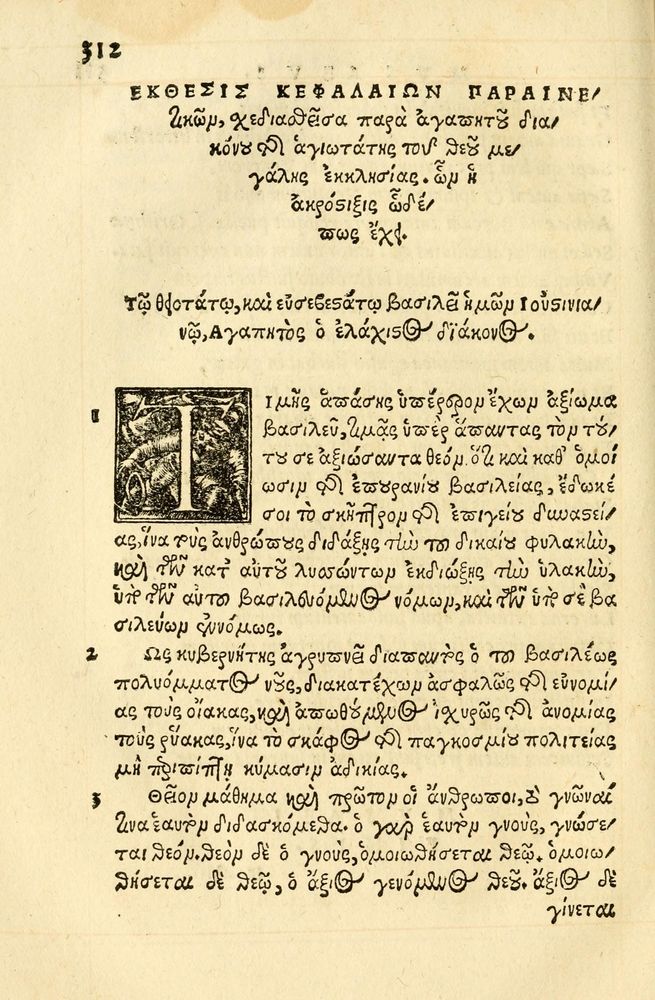 312
ΕΚΘΕΣΙΣ ΚΕΦΑΛΑΙΩΝ ΠΑΡΑΙΝΕ/
τικῶν, σχεδιασθεῖσα παρὰ ἀγαπητοῦ δια/
κόνου τῆς ἁγιωτάτης τοῦ θεοῦ με/
γάλης ἐκκλησίας. ὧν ἡ
ἀκρόστιξις ὧδέ/
πως ἔχει.
Τῷ θειοτάτῳ, καὶ εὐσεβεστάτῳ βασιλεῖ ἡμῶν Ιουστινια/
νῷ, Αγαπητὸς ὁ ἐλάχιστος διάκονος.
1 ΤΙμῆς ἁπάσης ὑπέρτερον ἔχων ἀξίωμα
βασιλεῦ, τίμας ὑπὲρ ἅπαντας τὸν τού/
του σε ἀξιώσαντα θεόν. ὅτι καὶ καθ' ὁμοί
ωσιν τῆς ἐπουρανίου βασιλείας, ἔδωκέ
σοι τὸ σκῆπτρον τῆς ἐπιγείου δυναστεί/
ας, ἵνα τοὺς ἀνθρώπους διδάξῃς τὴν τοῦ δικαίου φυλακὴν,
καὶ τῶν κατ' αὐτοῦ λυσσώντων ἐκδιώξῃς τὴν ὑλακὴν,
ὑπὸ τῶν αὐτοῦ βασιλευόμενος νόμων, καὶ τῶν ὑπὸ σὲ βα
σιλεύων ἐννόμως.
2 Ως κυβερνήτης ἀγρυπνεῖ διαπαντὸς ὁ τοῦ βασιλέως
πολυόμματος νοῦς, διακατέχων ἀσφαλῶς τῆς εὐνομί/
ας τοὺς οἴακας, καὶ ἀπωθούμενος ἰσχυρῶς τῆς ἀνομίας
τοὺς ῥύακας, ἵνα τὸ σκάφος τῆς παγκοσμίου πολιτείας
μὴ περιπίπτῃ κύμασιν ἀδικίας.
3 Θεῖον μάθημα καὶ πρῶτον οἱ ἄνθρωποι, τὸ γνῶναί
τινα ἑαυτὸν διδασκόμεθα. ὁ γὰρ ἑαυτὸν γνοὺς, γνώσε/
ται θεόν. θεὸν δὲ ὁ γνοὺς, ὁμοιωθήσεται θεῷ. ὁμοιω/
θήσεται δὲ θεῷ, ὁ ἄξιος γενόμενος θεοῦ. ἄξιος δὲ
γίνεται